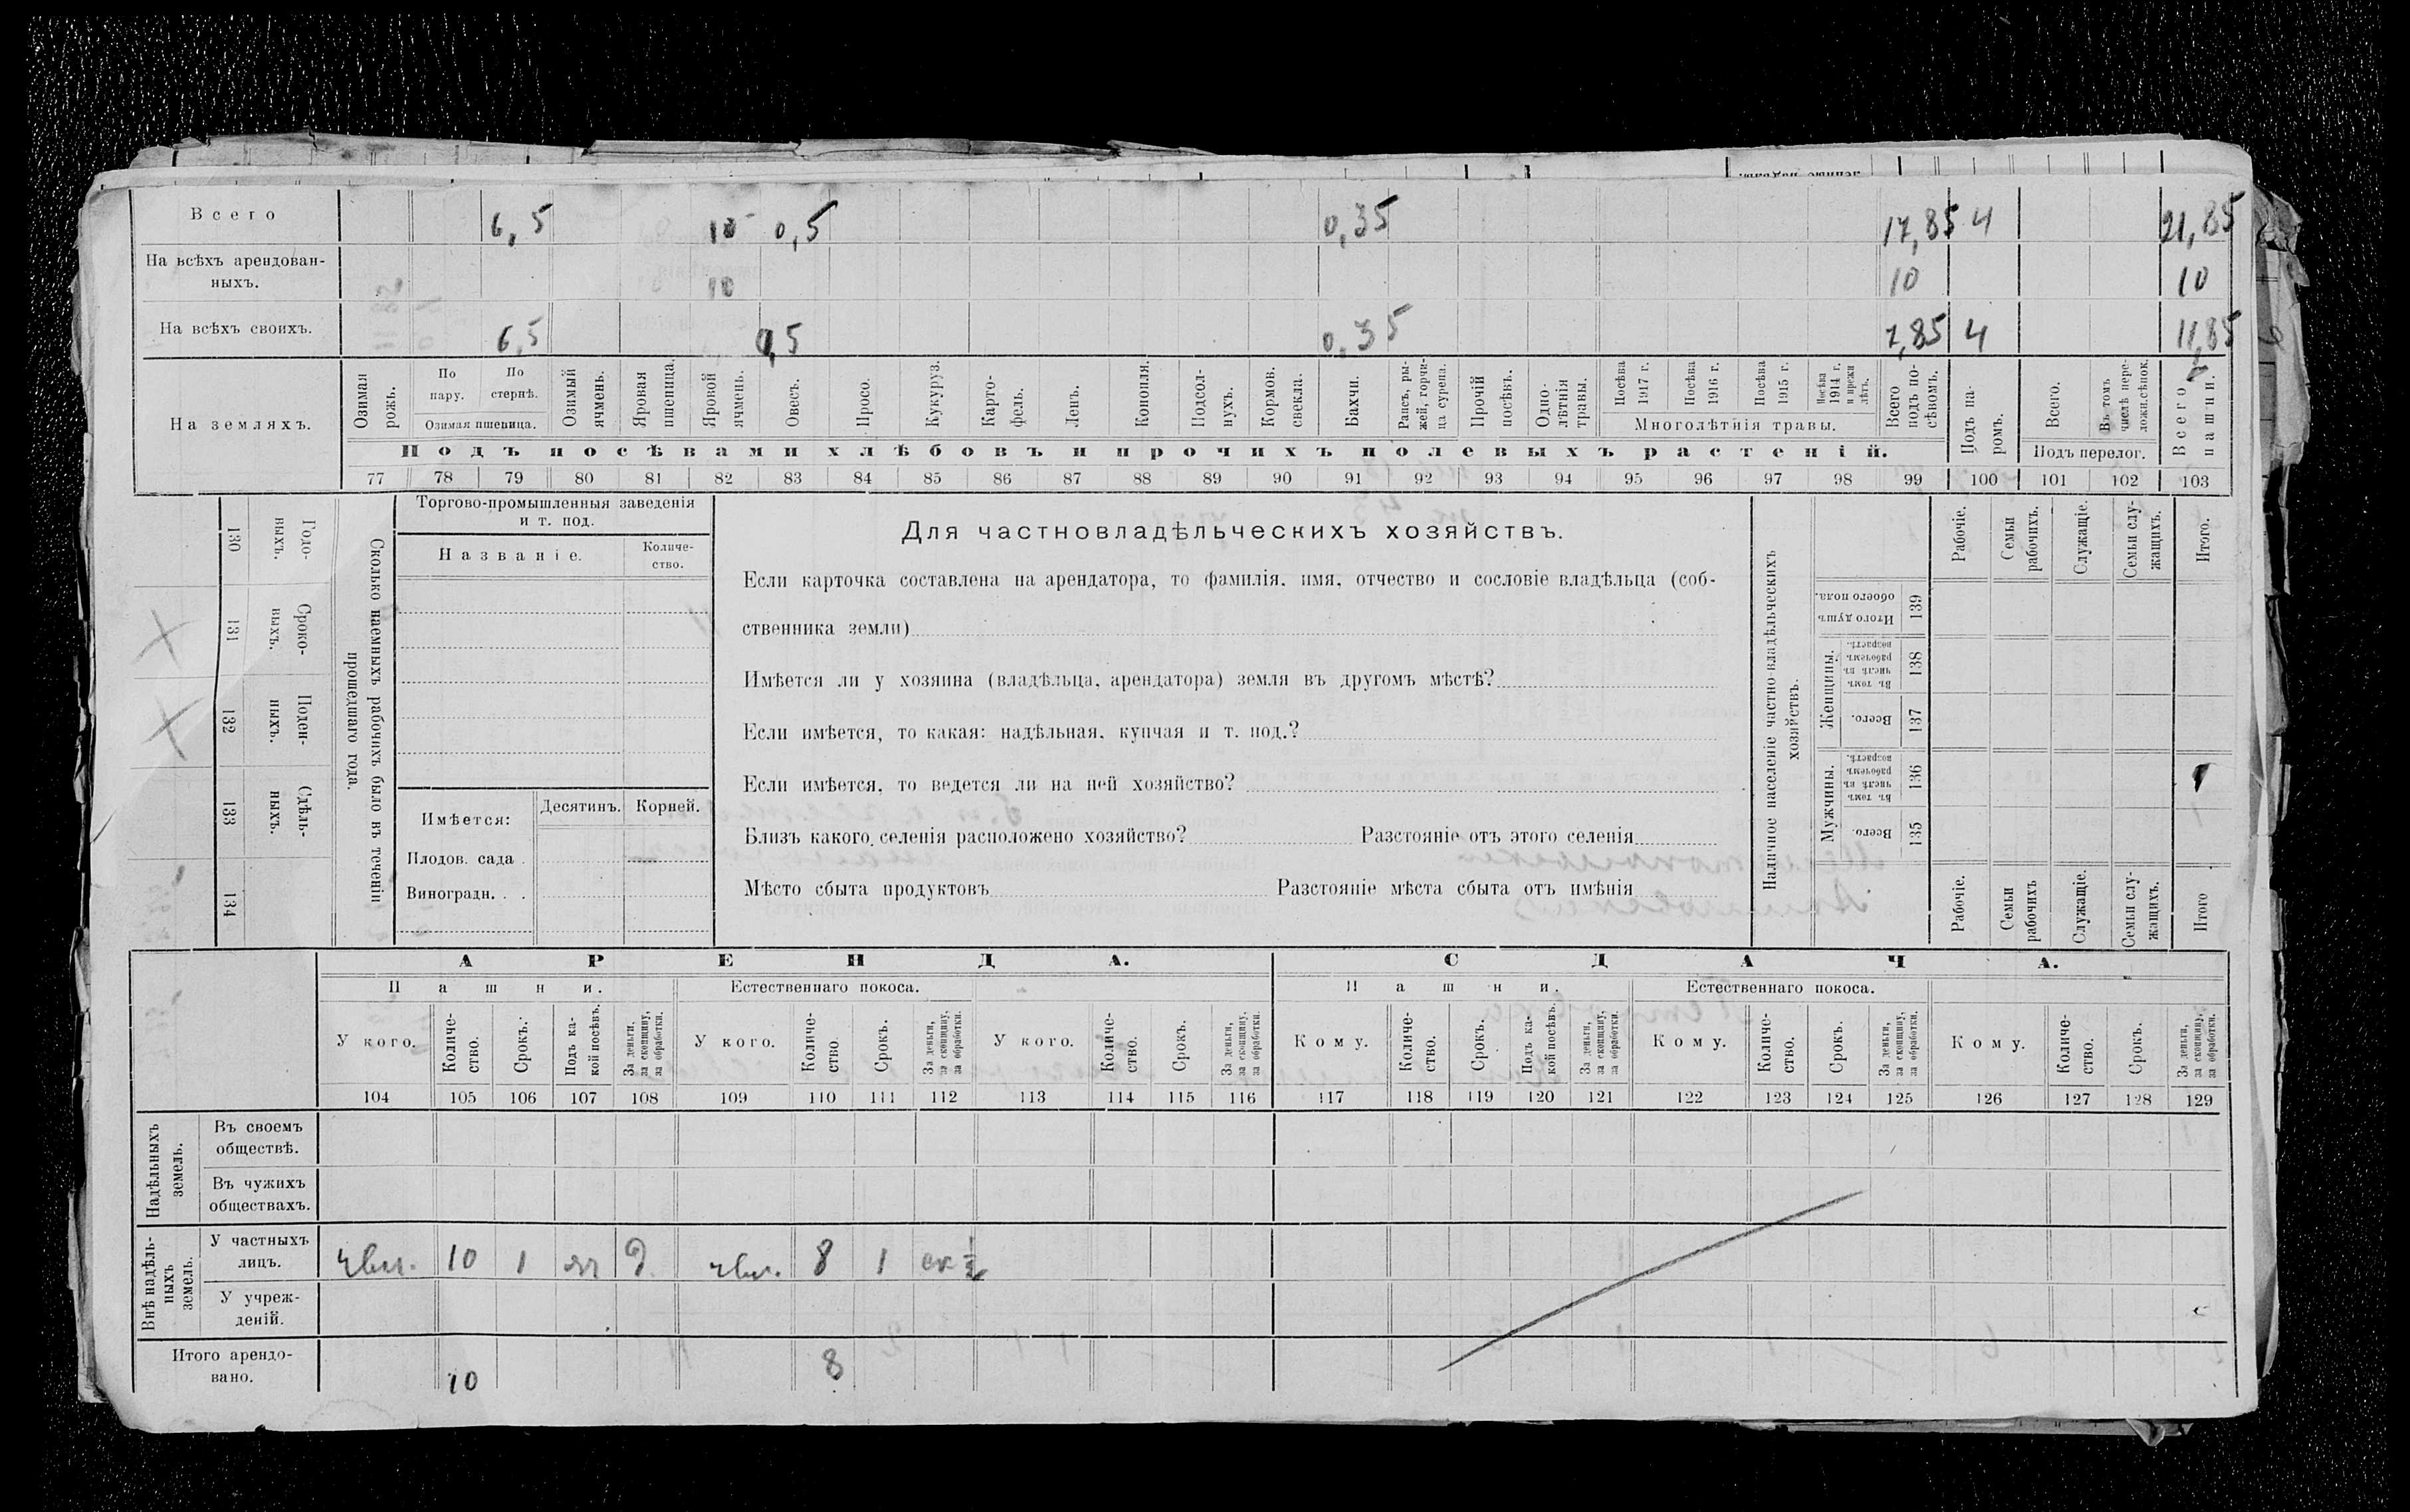 Всего 6,5 10 0,5 0,35 17,85 4 21,85
На всѣхъ арендован-
ныхъ. 10 10 10
На всѣхъ своихъ. 6,5 0,5 0,35 7,85 4 11,85
На земляхъ.
Озимая рожь.
По пару.
По стернѣ.
Озимая пшеница.
Озимый ячмень.
Яровая пшеница.
Яровой ячмень.
Овесъ.
Просо.
Кукуруз.
Карто-
фель.
Ленъ.
Конопля.
Подсол-
нухъ.
Кормов.
свекла.
Бахчи.
Рапсъ, ры-
жей, горчи-
ца сурепа.
Прочій
посѣвъ.
Одно-
лѣтнія
травы.
Посѣва
1917 г.
Посѣва
1916 г.
Посѣва
1915 г.
Посѣва
1914 г.
Многолѣтнія травы.
Всего
подъ по-
сѣвомъ.
Подъ па-
ромъ.
Всего.
Въ томъ
числѣ пере-
ложн. сѣнок.
Подъ перелог.
Всего
пашни.
Подъ посѣвами хлѣбовъ и прочихъ полевыхъ растеній.
77 78 79 80 81 82 83 84 85 86 87 88 89 90 91 92 93 94 95 96 97 98 99 100 101 102 103
130 Годо-
выхъ.
131 Сроко-
выхъ.
132 Поден-
ныхъ.
133 Сдѣль-
ныхъ.
134
Сколько наемныхъ рабочихъ было въ теченіи
прошедшаго года.
Торгово-промышленныя заведенія
и т. под.
Названіе.
Количе-
ство.
Имѣется:
Десятинъ.
Корней.
Плодов. сада .
Виноградн. . .
Для частновладѣльческихъ хозяйствъ.
Если карточка составлена на арендатора, то фамилія, имя, отчество и сословіе владѣльца (соб-
ственника земли)
Имѣется ли у хозяина (владѣльца, арендатора) земля въ другомъ мѣстѣ?
Если имѣется, то какая: надѣльная, купчая и т. под.?
Если имѣется, то ведется ли на ней хозяйство?
Близъ какого селенія расположено хозяйство? Разстояніе отъ этого селенія
Мѣсто сбыта продуктовъ Разстояніе мѣста сбыта отъ имѣнія
Наличное населеніе частно-владѣльческихъ
хозяйствъ.
Рабочіе.
Семьи
рабочихъ.
Служащіе.
Семьи слу-
жащихъ.
Итого.
Итого душъ
обоего пола.
139
Женщины.
Въ томъ
числѣ въ
рабочемъ
возрастѣ.
138
Всего.
137
Мужчины.
Въ томъ
числѣ въ
рабочемъ
возрастѣ.
136
Всего.
135
Рабочіе.
Семьи
рабочихъ
Служащіе.
Семьи слу-
жащихъ.
Итого
АРЕНДА. СДАЧА.
Пашни. Естественнаго покоса. Пашни. Естественнаго покоса.
У кого.
Количе-
ство.
Срокъ.
Подъ ка-
кой посѣвъ.
За деньги,
за скопщину,
за обработки.
У кого.
Количе-
ство.
Срокъ.
За деньги,
за скопщину,
за обработки.
У кого.
Количе-
ство.
Срокъ.
За деньги,
за скопщину,
за обработки.
Кому.
Количе-
ство.
Срокъ.
Подъ ка-
кой посѣвъ.
За деньги,
за скопщину,
за обработки.
Кому.
Количе-
ство.
Срокъ.
За деньги,
за скопщину,
за обработки.
Кому.
Количе-
ство.
Срокъ.
За деньги,
за скопщину,
за обработки.
104 105 106 107 108 109 110 111 112 113 114 115 116 117 118 119 120 121 122 123 124 125 126 127 128 129
Надѣльныхъ
земель.
Въ своемъ
обществѣ.
Въ чужихъ
обществахъ.
Внѣ надѣль-
ныхъ
земель.
У частныхъ
лицъ. 10 1 яч д 8 1 ск ½
У учреж-
деній.
Итого арендо-
вано. 10 8